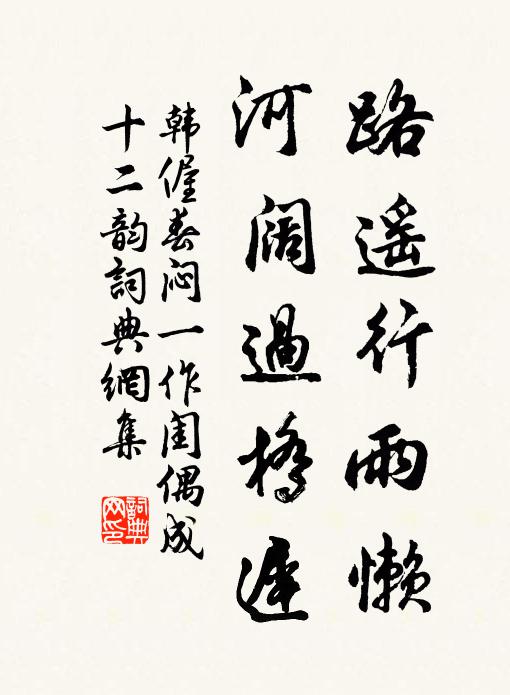 路遥行雨懒
河阔過橋遲
韩偓春闷一作闺偶成
十二韵詞典網集
詞典
网印